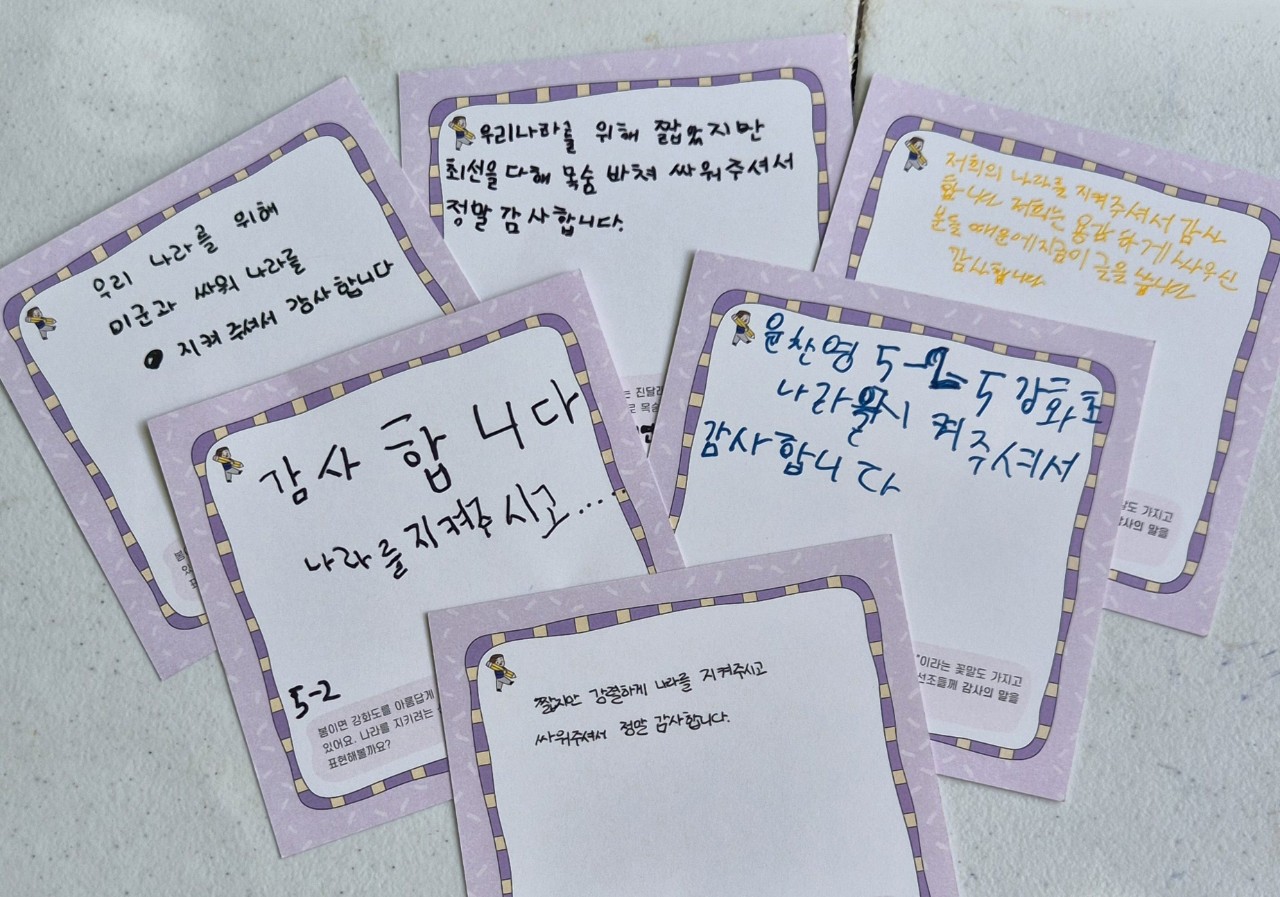 우리 나라를 위해
미군과 싸워 나라를
지켜 주셔서 감사합니다
우리나하를 위해 짧았지만
최선을 다해 목숨 바쳐 싸워주셔서
정말 감사합니다.
저희의 나라를 지켜주셔서 감사
합니다 저희는 용감하게 싸우신
분들 때문에 지금이 글을 씁니다
감사합니다
감사합니다
나라를 지켜주시고....
5-2
봄이면 강화도를 아름답게
있어요. 나라를 지키려는
표현해볼까요?
윤찬영 5-2-5 강화초
나라를 지켜주셔서
감사합니다
"이라는 꽃말도 가지고
선조들께 감사의 말을
짧지만 강렬하게 나라를 지켜주시고
싸워주셔서 정말 감사합니다.
는 진달래
로 목숨
말도 가지고
감사의 말을